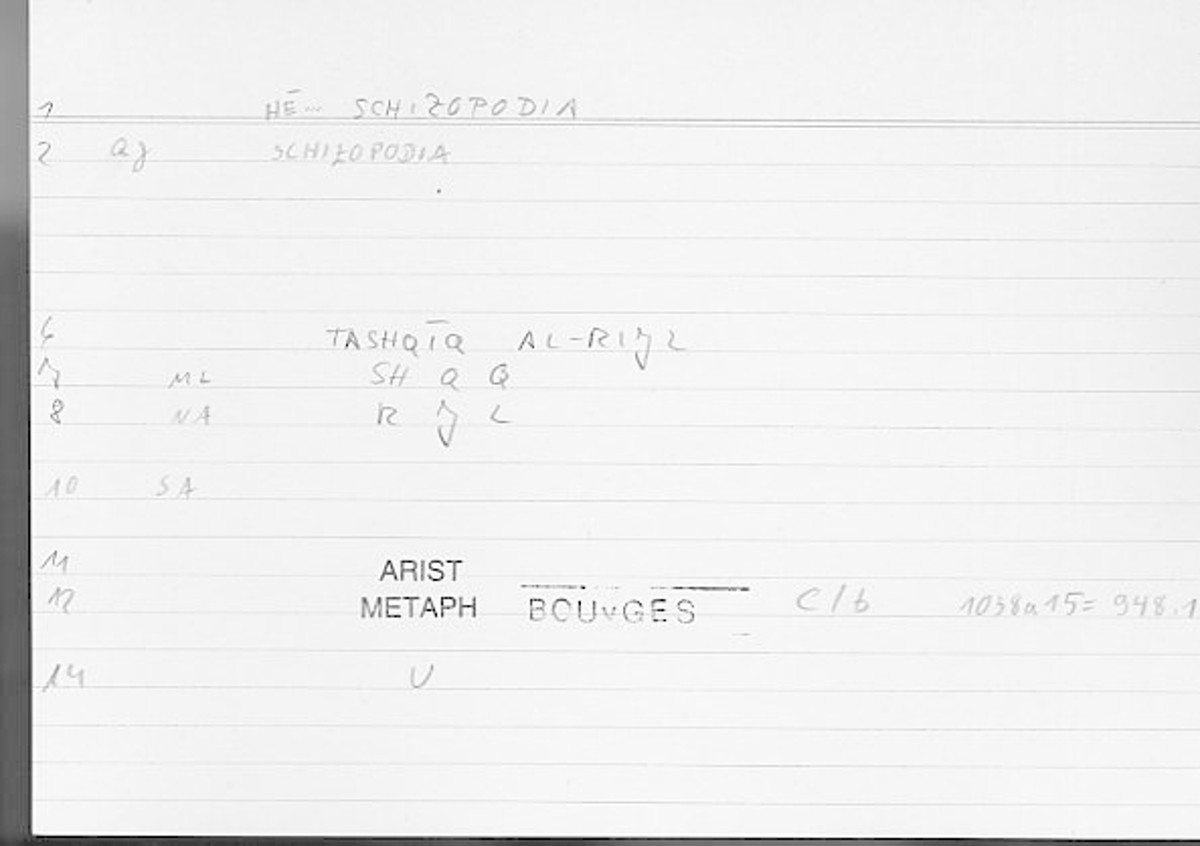 1 HĒ... SCHIZOPODIA
2 aj SCHIZOPODIA
6 TASHQĪQ AL-RIJL
7 ML SH Q Q
8 NA R J L
10 SA
11 ARIST
12 METAPH BOUYGES C/b 1038a15= 948.1
14 U